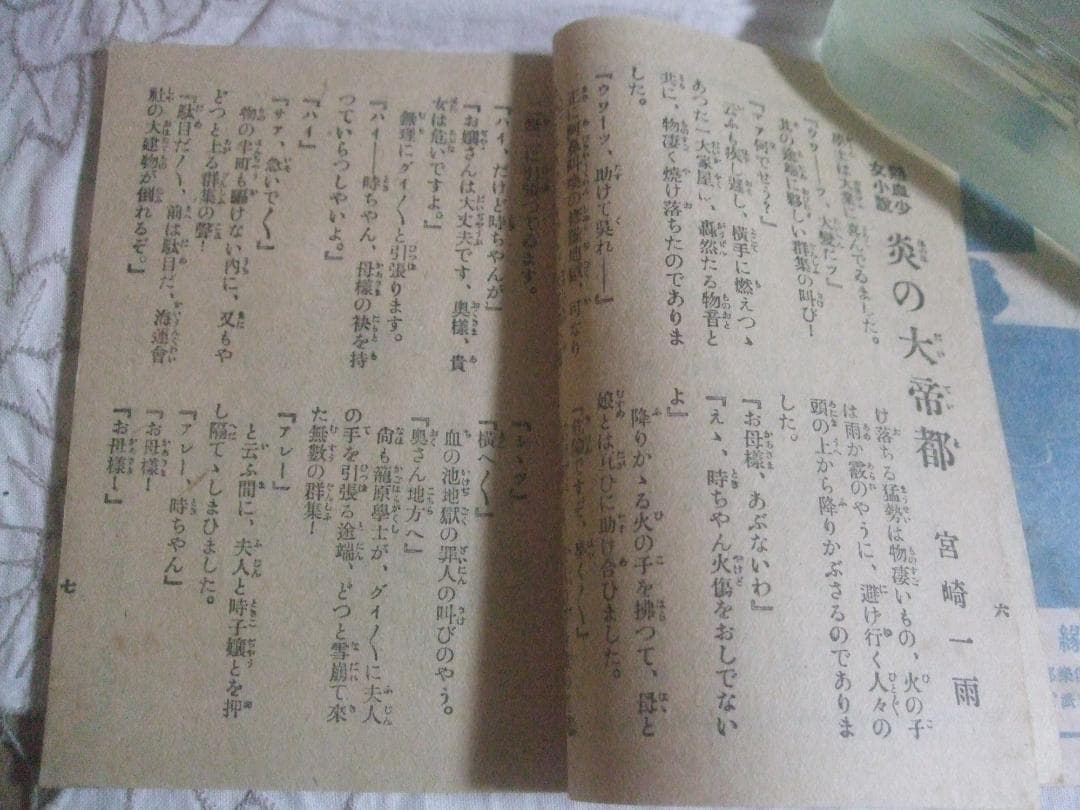 熱血少
女小說
炎の大帝都
宮崎一雨
六
學士は大業に叫んでゐました。
『ウワーッ、大變だッ』
其の途端に夥しい群集の叫び!
『マア何でせう?』
横手に燃えつゝ
あつた一大家屋に、轟然たる物音と
共に、物凄く燒け落ちたのでありま
した。
『ウワーッ、助けて吳れ――』
け落ちる猛勢は物凄いもの、火の子
は雨か霰のやうに、避け行く人々の
頭の上から降りかぶさるのでありま
した。
『お母樣、あぶないわ』
『えゝ、時ちやん火傷をおしでない
よ』
降りかゝる火の子を拂つて、母と
娘とは互ひに助け合ひました。
に引張つてゐます。
『ハイ、だけど時ちやんが』
『お孃さんは大丈夫です、奥樣、貴
女は危いですよ。』
無理にグイ〳〵と引張ります。
『ハイ――時ちやん、母樣の袂を持
つていらつしやいよ。』
『ハイ』
『サア、急いで〳〵』
物の半町も驅けない內に、又もや
どつと上る群集の聲!
『駄目だ〳〵、前は駄目だ、海運會
社の大建物が倒れるぞ。』
『橫へ〳〵』
血の池地獄の罪人の叫びのやう。
『奥さん地方へ』
尙も籠原學士が、グイ〳〵に夫人
の手を引張る途端、どつと雪崩て來
た無數の群集!
『アレー』
と云ふ間に、夫人と時子孃とを押
し隔てゝしまひました。
『アレー、時ちやん』
『お母樣!
『お母樣!』
七